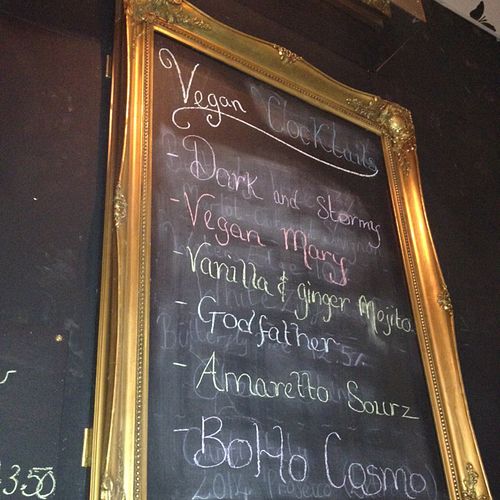 Vegan Cocktails
- Dark and Stormy
- Vegan Mary
- Vanilla & ginger Mojito
- Godfather
- Amaretto Sourz
- BoHo Cosmo
3.50